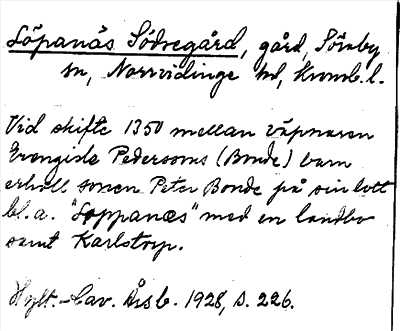 Löpanäs Södregård, gård, Söraby
sn, Norrvidinge hd, Kronob. l.
Vid skifte 1350 mellan väpnaren
Erengisle Pederssons (Bonde) barn
erhöll sonen Peter Bonde på sin lott
bl. a. "Loppanæs" med en landbo
samt Karlstorp.
Hylt.-Cav. Årsb. 1928, s. 226.